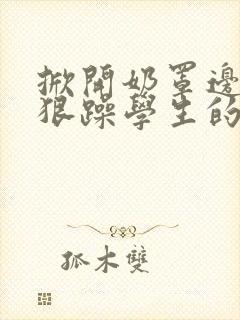 掀開奶罩邊
狠躁學生的
孤木雙